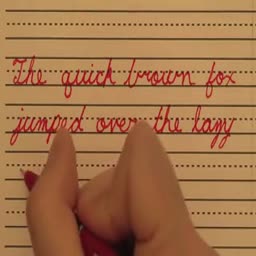 The quick brown fox
jumped over the lazy